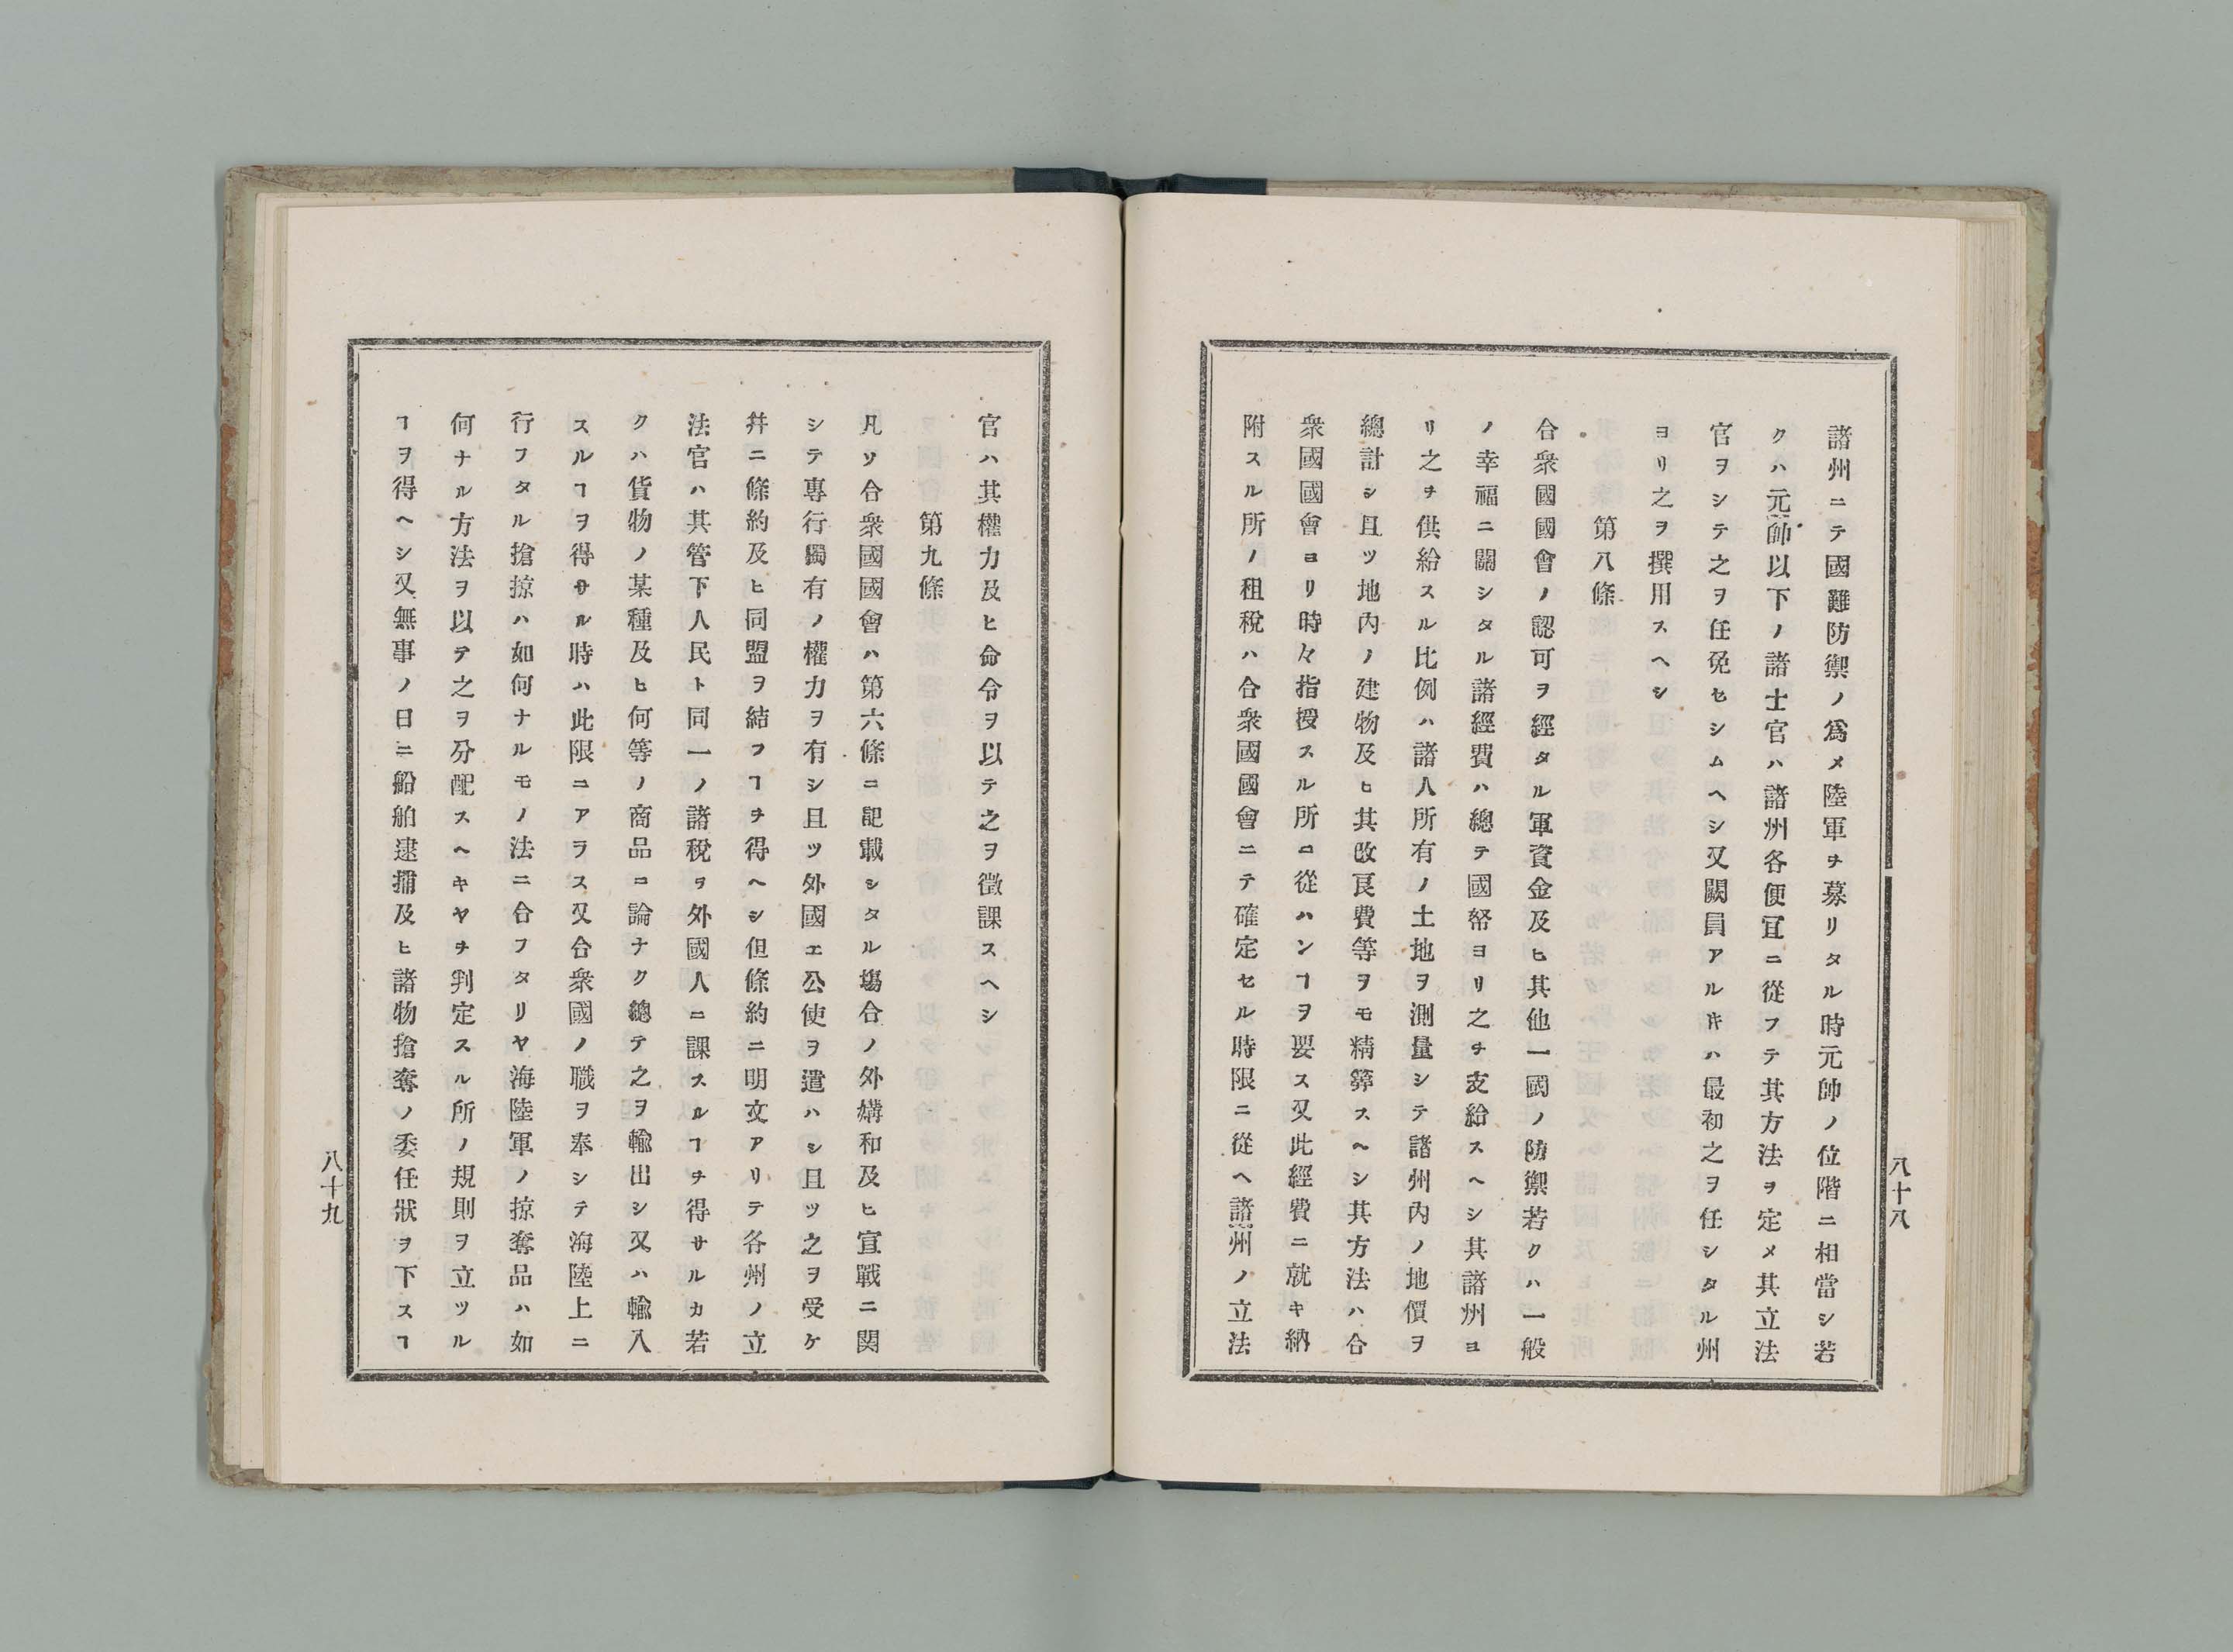 諸州ニテ國難防禦ノ爲メ陸軍ヲ募リタル時元帥ノ位階ニ相當シ若
クハ元帥以下ノ諸士官ハ諸州各便冝ニ從フテ其方法ヲ定メ其立法
官ヲシテ之ヲ任免セシムヘシ又闕員アルキハ最初之ヲ任シタル州
ヨリ之ヲ撰用スヘシ
第八條
合衆國國會ノ認可ヲ經タル軍資金及ヒ其他一國ノ防禦若クハ一般
ノ幸福ニ關シタル諸經費ハ總テ國帑ヨリ之ヲ支給スヘシ其諸州ヨ
リ之ヲ供給スル比例ハ諸人所有ノ土地ヲ測量シテ諸州内ノ地價ヲ
總計シ且ツ地内ノ建物及ヒ其改良費等ヲモ精算スヘシ其方法ハ合
衆國國會ヨリ時々指授スル所ニ從ハンヿヲ要ス又此經費ニ就キ納
附スル所ノ租税ハ合衆國國會ニテ確定セル時限ニ從ヘ諸州ノ立法
八十八
官ハ其權力及ヒ命令ヲ以テ之ヲ徴課スヘシ
第九條
凡ソ合衆國國會ハ第六條ニ記載シタル塲合ノ外媾和及ヒ宣戰ニ関
シテ專行獨有ノ權力ヲ有シ且ツ外國エ公使ヲ遣ハシ且ツ之ヲ受ケ
幷ニ條約及ヒ同盟ヲ結フヿヲ得ヘシ但條約ニ明文アリテ各州ノ立
法官ハ其管下人民ト同一ノ諸税ヲ外國人ニ課スルヿヲ得サルカ若
クハ貨物ノ某種及ヒ何等ノ商品ニ論ナク總テ之ヲ輸出シ又ハ輸入
スルヿヲ得サル時ハ此限ニアラス又合衆國ノ職ヲ奉シテ海陸上ニ
行フタル搶掠ハ如何ナルモノ法ニ合フタリヤ海陸軍ノ掠奪品ハ如
何ナル方法ヲ以テ之ヲ分配スヘキヤヲ判定スル所ノ規則ヲ立ツル
ヿヲ得ヘシ又無事ノ日ニ船舶逮捕及ヒ諸物搶奪ノ委任狀ヲ下スヿ
八十九